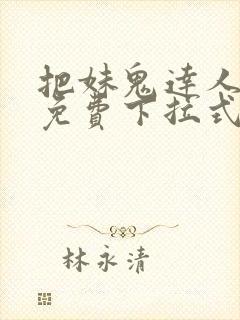 把妹鬼達人
免費下拉式
林永清